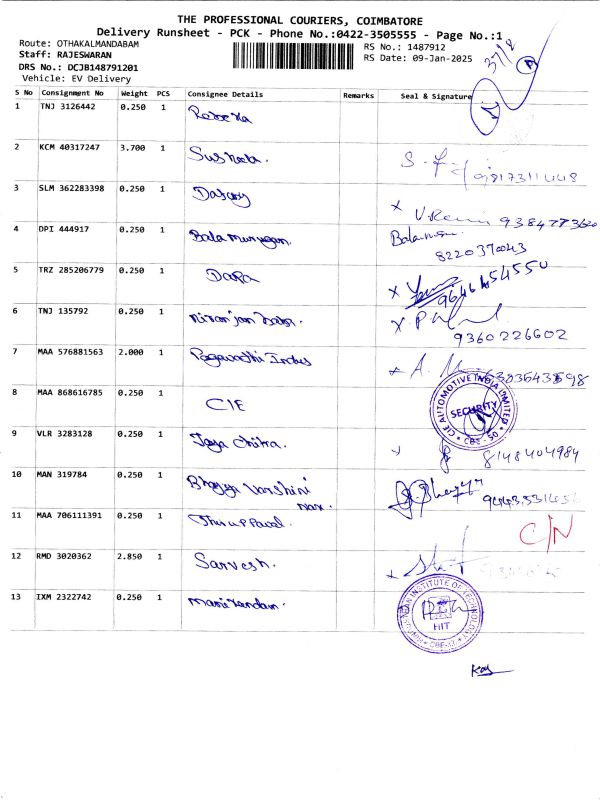 THE PROFESSIONAL COURIERS, COIMBATORE
Delivery Runsheet - PCK - Phone No.:0422-3505555 - Page No.:1
Route: OTHAKALMANDABAM
RS No.: 1487912
Staff: RAJESWARAN
RS Date: 09-Jan-2025
DRS No.: DCJB148791201
Vehicle: EV Delivery
37/8
S No Consignment No Weight PCS Consignee Details Remarks Seal & Signature
1 TNJ 3126442 0.250 1
2 KCM 40317247 3.700 1 Susheela.
3 SLM 362283398 0.250 1
4 DPI 444917 0.250 1 Bala murugan.
8220370043
5 TRZ 285206779 0.250 1
6 TNJ 135792 0.250 1 Niranjan babu.
9360226602
7 MAA 576881563 2.000 1
8 MAA 868616785 0.250 1 CIE
CIE AUTOMOTIVE INDIA LIMITED
SECURITY
CBE-50
9 VLR 3283128 0.250 1 Jaya Chitra.
8148404984
10 MAN 319784 0.250 1 Bhagya Varshini
11 MAA 706111391 0.250 1
C/N
12 RMD 3020362 2.850 1 Sarvesh.
13 IXM 2322742 0.250 1 Manikandan.
INSTITUTE OF TECHNOLOGY
HIT
CBE-32